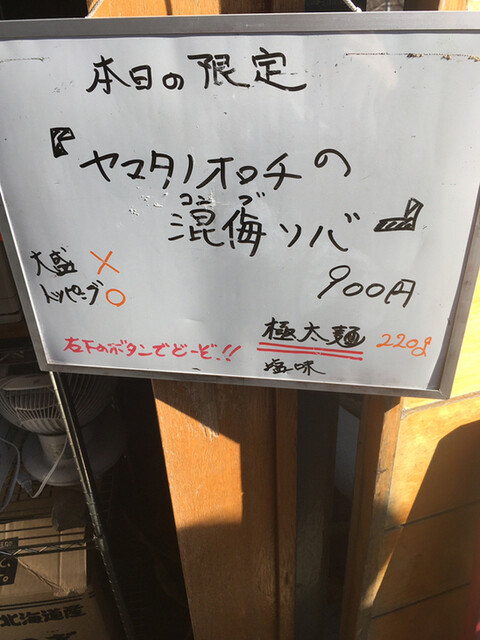 本日の限定
『ヤマタノオロチの
コンブ
混侮ソバ』
900円
大盛 ×
トッピング ○
極太麺 220g
塩味
左下のボタンでどーぞ!!
北海道産